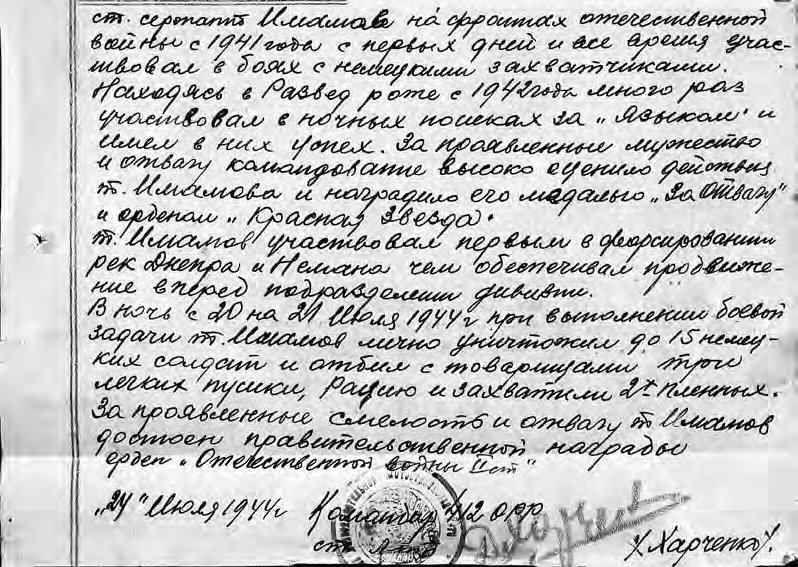 ст. сержант Имамов на фронтах отечественной
войны с 1941 года с первых дней и все время учас-
твовал в боях с немецкими захватчиками.
Находясь в Развед роте с 1942 года много раз
участвовал в ночных поисках за „Языком" и
имел в них успех. За проявленные мужество
и отвагу командование высоко оценило действия
т. Имамова и наградило его медалью „За Отвагу"
и орденом „Красная Звезда".
т. Имамов участвовал первым в форсировании
рек Днепра и Немана чем обеспечивал продвиже-
ние вперед подразделений дивизии.
В ночь с 20 на 21 Июля 1944 г при выполнении боевой
задачи т. Имамов лично уничтожил до 15 немец-
ких солдат и отбил с товарищами три
легких пушки, Рацию и захватили 2х пленных.
За проявленные смелость и отвагу т Имамов
достоен правительственной награды
орден „Отечественной войны II ст"
„24" Июля 1944 г Командир 412 ОРР
ст.
/Харченко/.